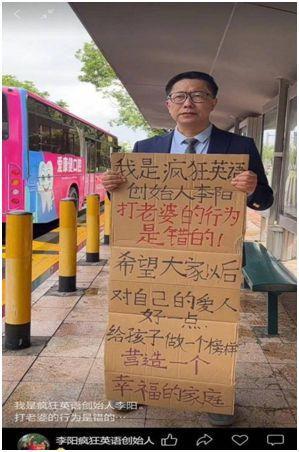 爱康健口腔
我是疯狂英语
创始人李阳
打老婆的行为
是错的！
希望大家以后
对自己的爱人
好一点
给孩子做一个榜样
营造一个
幸福的家庭
我是疯狂英语创始人李阳，
打老婆的行为是错的…
李阳疯狂英语创始人